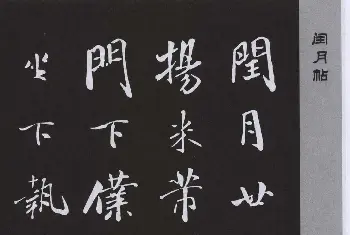 闰月帖
閏月廿
揚米芾
門下僕
坐下執